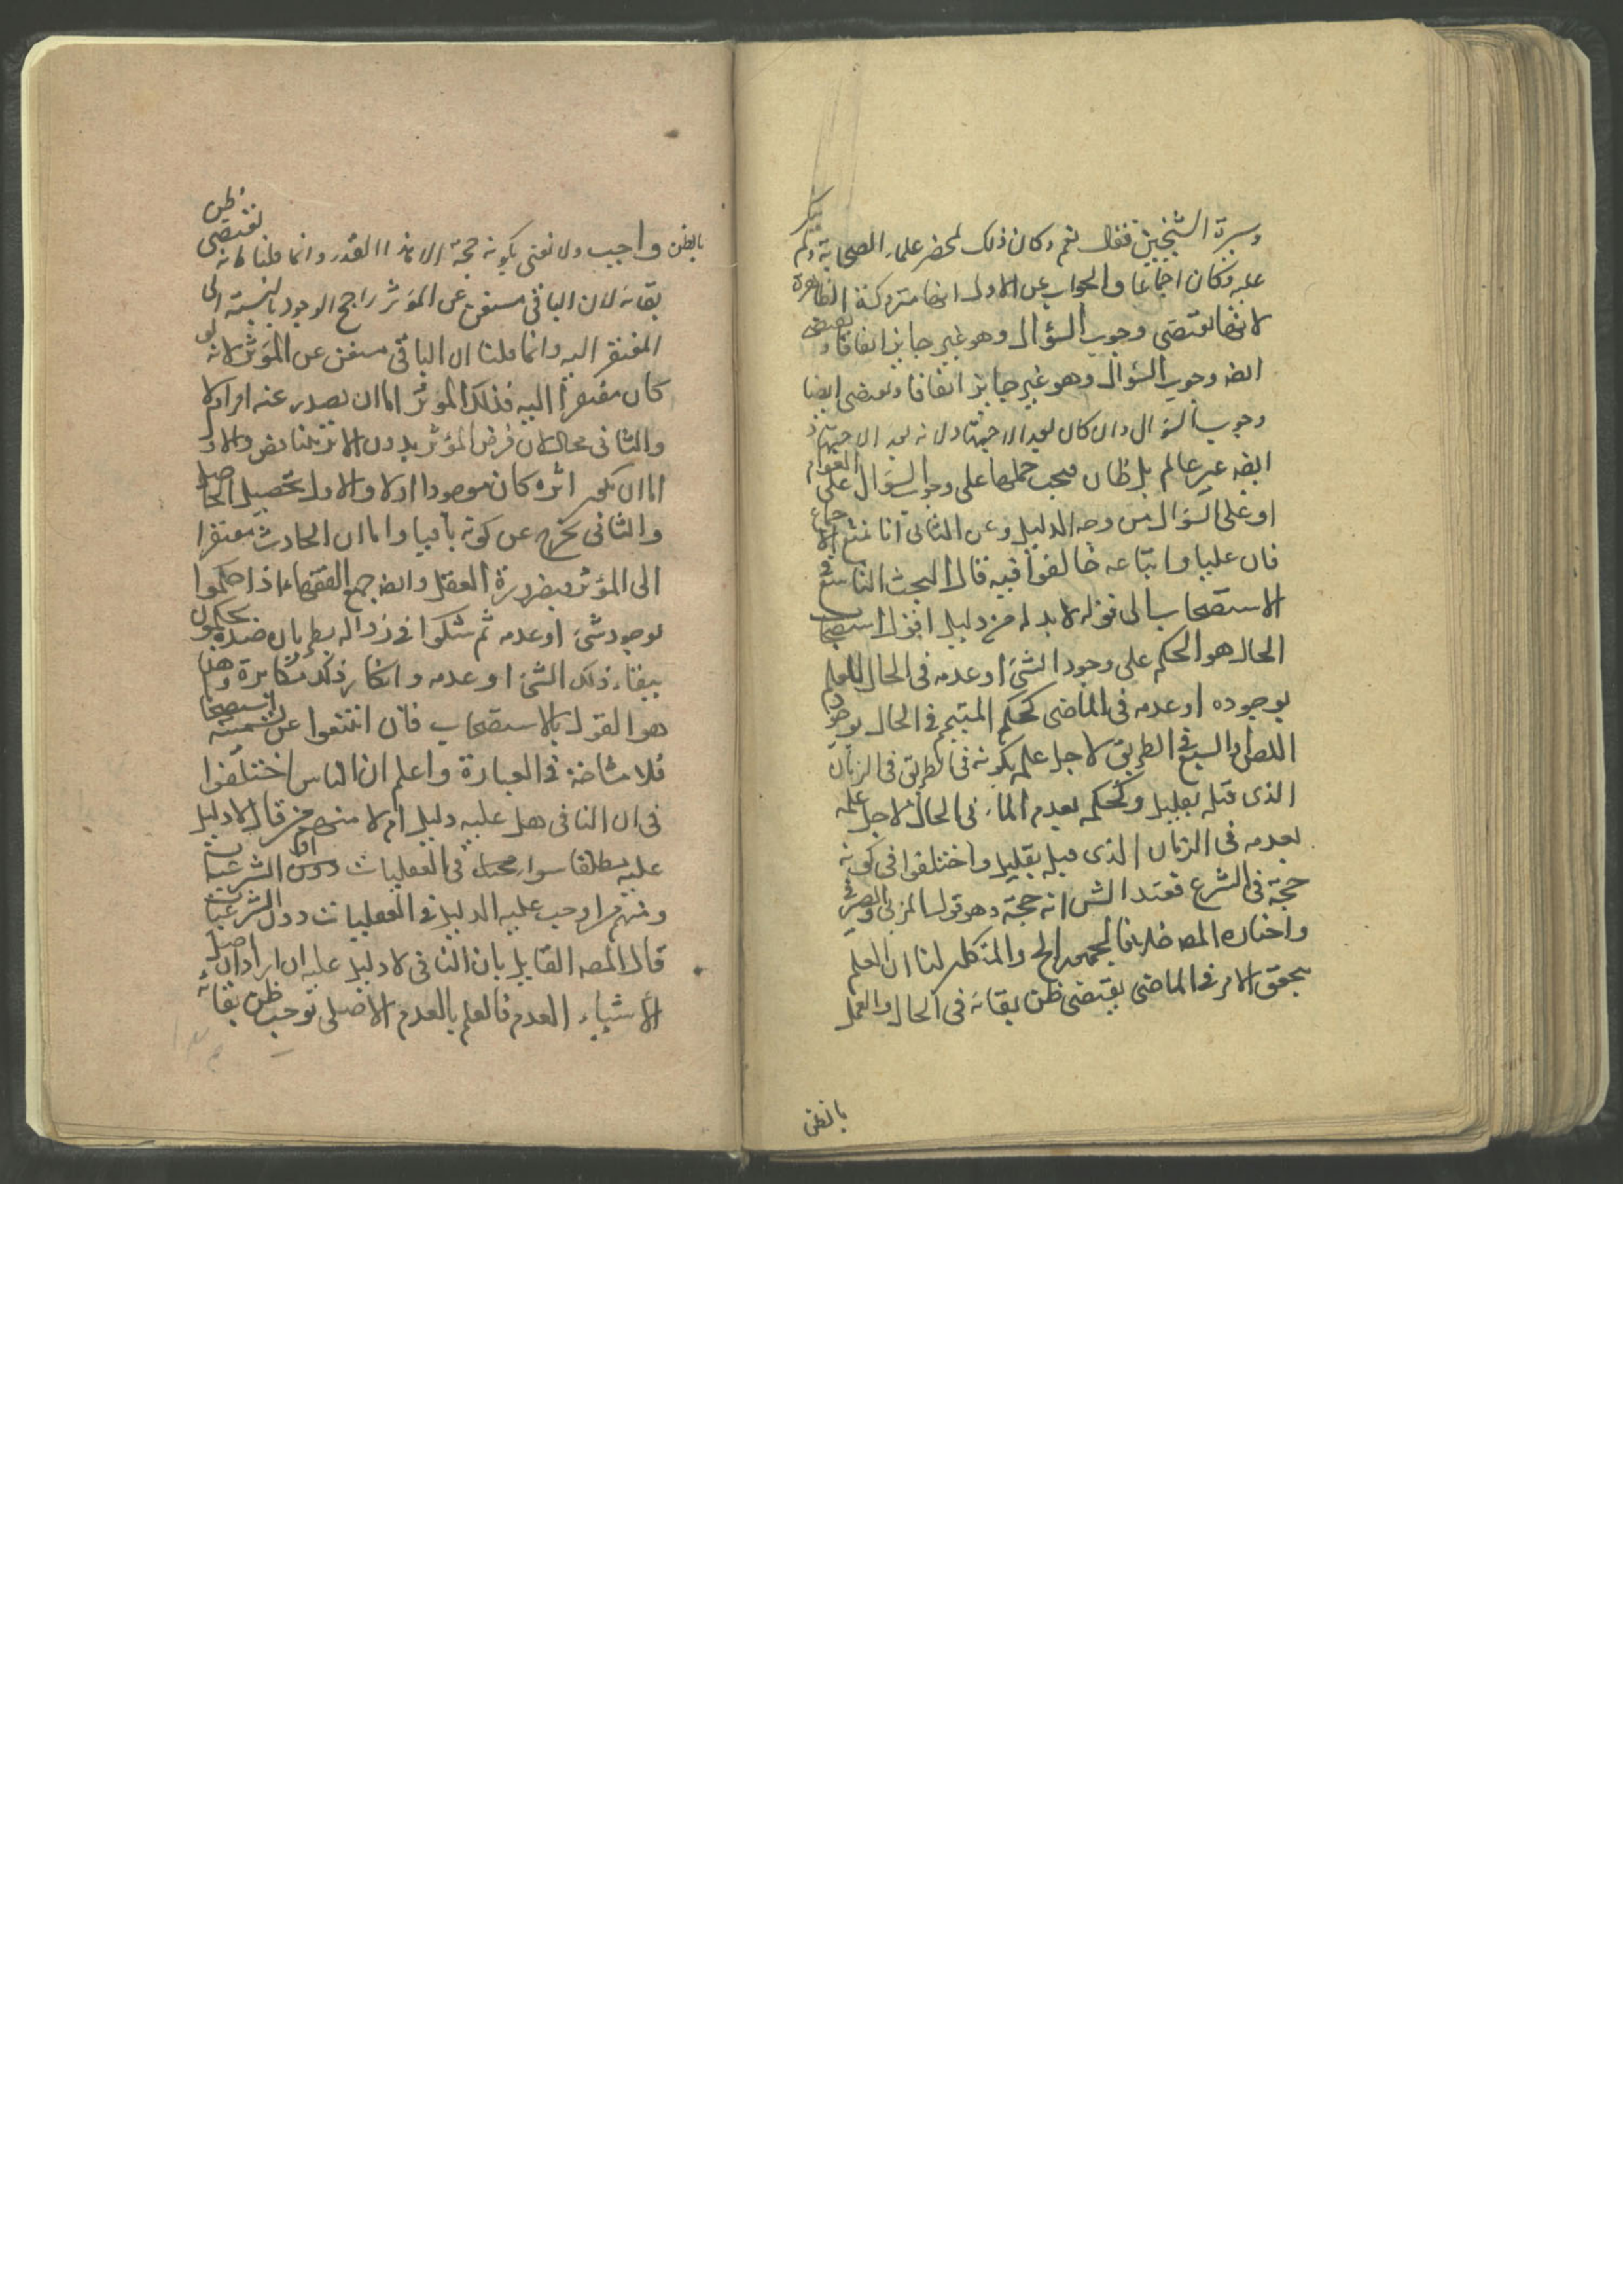 وسيرة الشيخين فقال نعم وكان ذلك بمحضر علماء الصحابة ولم ينكر
عليه وكان اجماعا والجواب عن الاول انها متروكة الظاهرة
لانها تقتضى وجوب السؤال وهو غير جايز اتفاقا وتقتضى
ايضه وجوب السؤال وهو غير جايز اتفاقا وتقتضى ايضا
وجوب السؤال وان كان بعد الاجتهاد لانه بعد الاجتهاد
ايضه غير عالم بل ظان فيجب حملها على وجوب السؤال على العوام
او على السؤال من وجه الدليل وعن الثانى انا نمنع الاجماع
فان عليا واتباعه خالفوا فيه قال البحث التاسع فى
الاستصحاب الى قوله لا بد له من دليل اقول استصحاب
الحال هو الحكم على وجود الشئ او عدمه فى الحال للعلم
بوجوده او عدمه فى الماضى كحكم المتيمم فى الحال بوجود
اللص او السبع فى الطريق لاجل علمه بكونه فى الطريق فى الزمان
الذى قبله بقليل وكحكمه بعدم الماء فى الحال لاجل علمه
بعدمه فى الزمان الذى قبله بقليل واختلفوا فى كونه
حجة فى الشرع فعند الشس انه حجة وهو قول المزنى والصيرفى
واختاره المصه خلافا لجمهور الح والمتكلمين لنا ان العلم
بتحقق الامر فى الماضى يقتضى ظن بقائه فى الحال والعمل
بالظن
بالظن واجب ولا نعنى بكونه حجة الا هذا القدر وانما قلنا انه يقتضى ظن
بقائه لان الباقى مستغن عن المؤثر راجح الوجود بالنسبة الى
المفتقر اليه وانما قلنا ان الباقى مستغن عن المؤثر لانه لو
كان مفتقرا اليه فذلك المؤثر اما ان يصدر عنه امر او لا
والثانى محال لان فرض المؤثر بدون الاثر تناقض والاول
اما ان يكون اثره كان موجودا او لا والاول تحصيل الحاصل
والثانى يخرج عن كونه باقيا واما ان الحادث مفتقرا
الى المؤثر فبضرورة العقل وايضه جميع الفقهاء اذا حكموا
بوجود شئ او عدمه ثم شكوا فى زواله بطريان ضده يحكمون
ببقاء ذلك الشئ او عدمه وانكار ذلك مكابرة وهذا
هو القول بالاستصحاب فان امتنعوا عن تسميته استصحابا
فلا مشاحة فى العبارة واعلم ان الناس اختلفوا
فى ان النافى هل عليه دليل ام لا منهم من قال لا دليل
عليه مطلقا سواء كان فى العقليات او الشرعيات
ومنهم من اوجب عليه الدليل فى العقليات دون الشرعيات
قال المصه القايل بان النافى لا دليل عليه ان اراد ان اصل
الأشياء العدم فالعلم بالعدم الاصلى يوجب ظن بقائه